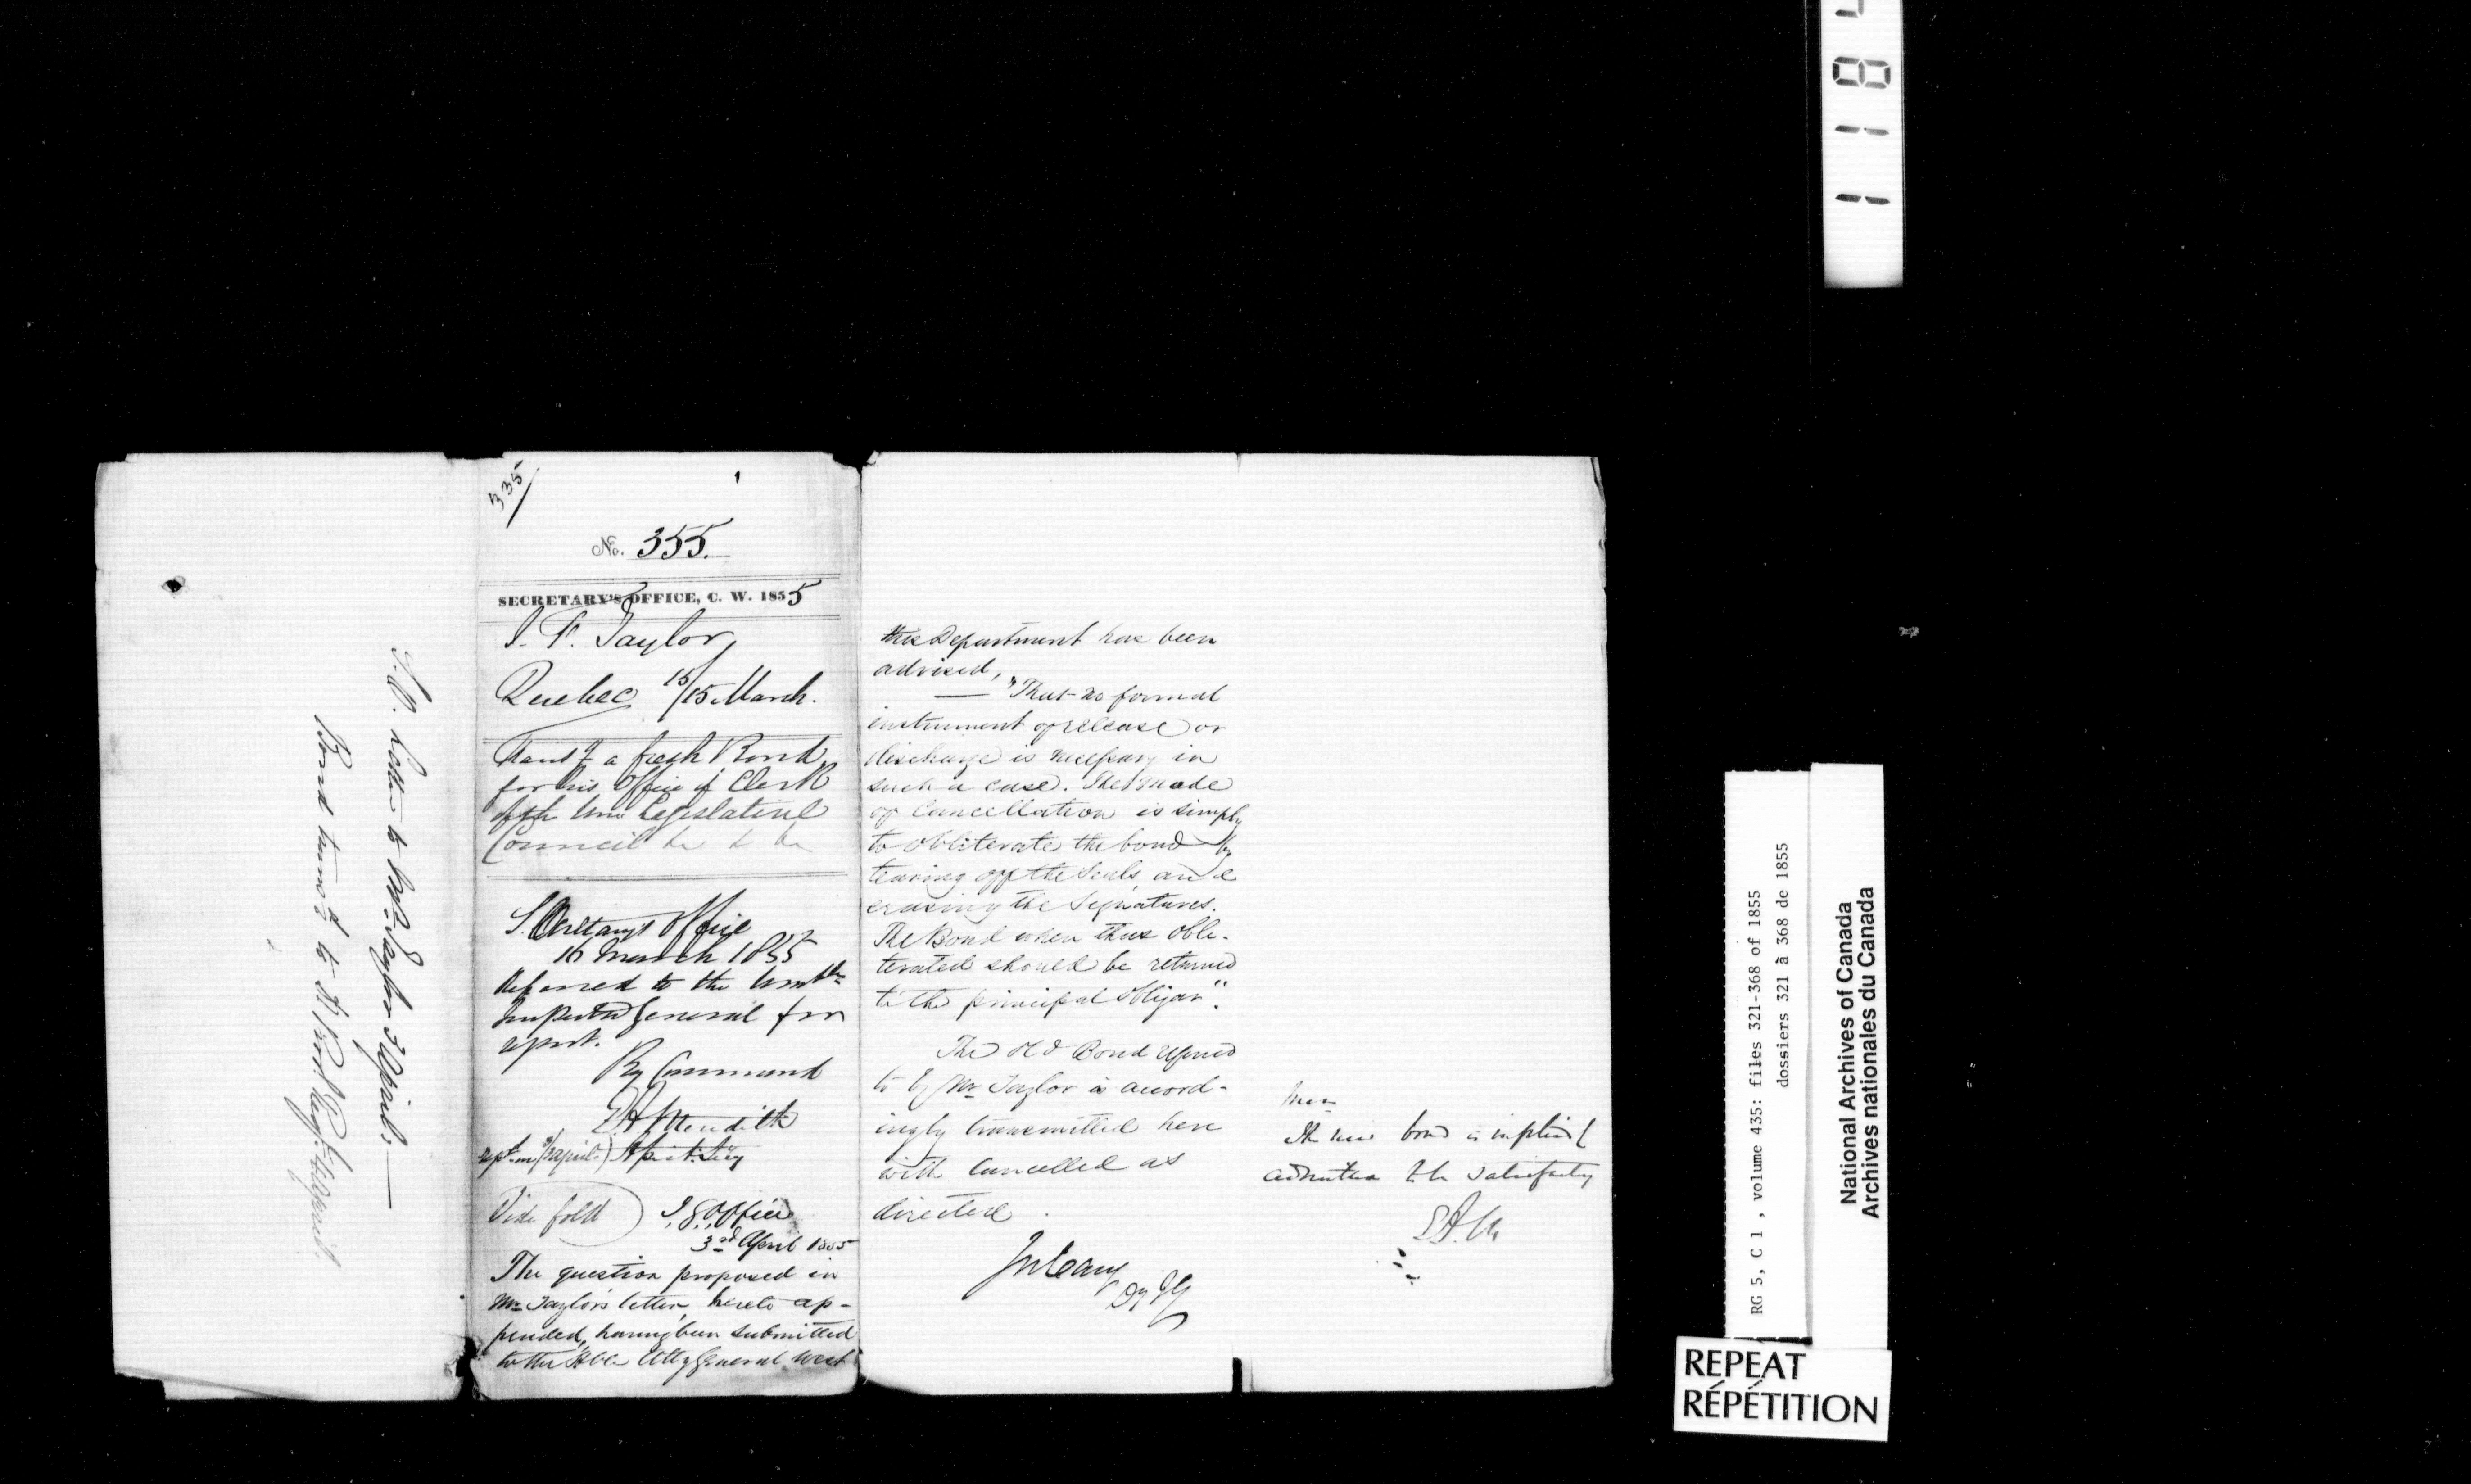 335
No. 355.
SECRETARY'S OFFICE, C. W. 1855
J. F. Taylor,
Quebec 15/15 March.
Transt a fresh Bond
for his Office of Clerk
of the Legislative
Council
S. Office
16 March 1855
Referred to the
Inspector General for
report.
By Command
E A Meredith
Asst. Secy
Vide fold
I. G. Office
3rd April 1855
The question proposed in
Mr Taylor's letter, hereto ap-
pended, having been submitted
to the Hble Atty General West
this Department have been
advised,
— "That no formal
instrument of release or
discharge is necessary in
such a case. The mode
of Cancellation is simply
to obliterate the bond by
tearing off the Seals, and
erasing the Signatures.
The Bond when thus obli-
terated should be returned
to the principal obligor".
The old Bond referred
to by Mr Taylor is accord-
ingly transmitted here
with Cancelled as
directed.
Dy I G
The new bond is
E.A.M.
Letter to Mr Taylor 3 April.—
Bond transd to
1184
RG 5, C 1 , volume 435: files 321-368 of 1855
dossiers 321 à 368 de 1855
National Archives of Canada
Archives nationales du Canada
REPEAT
RÉPÉTITION